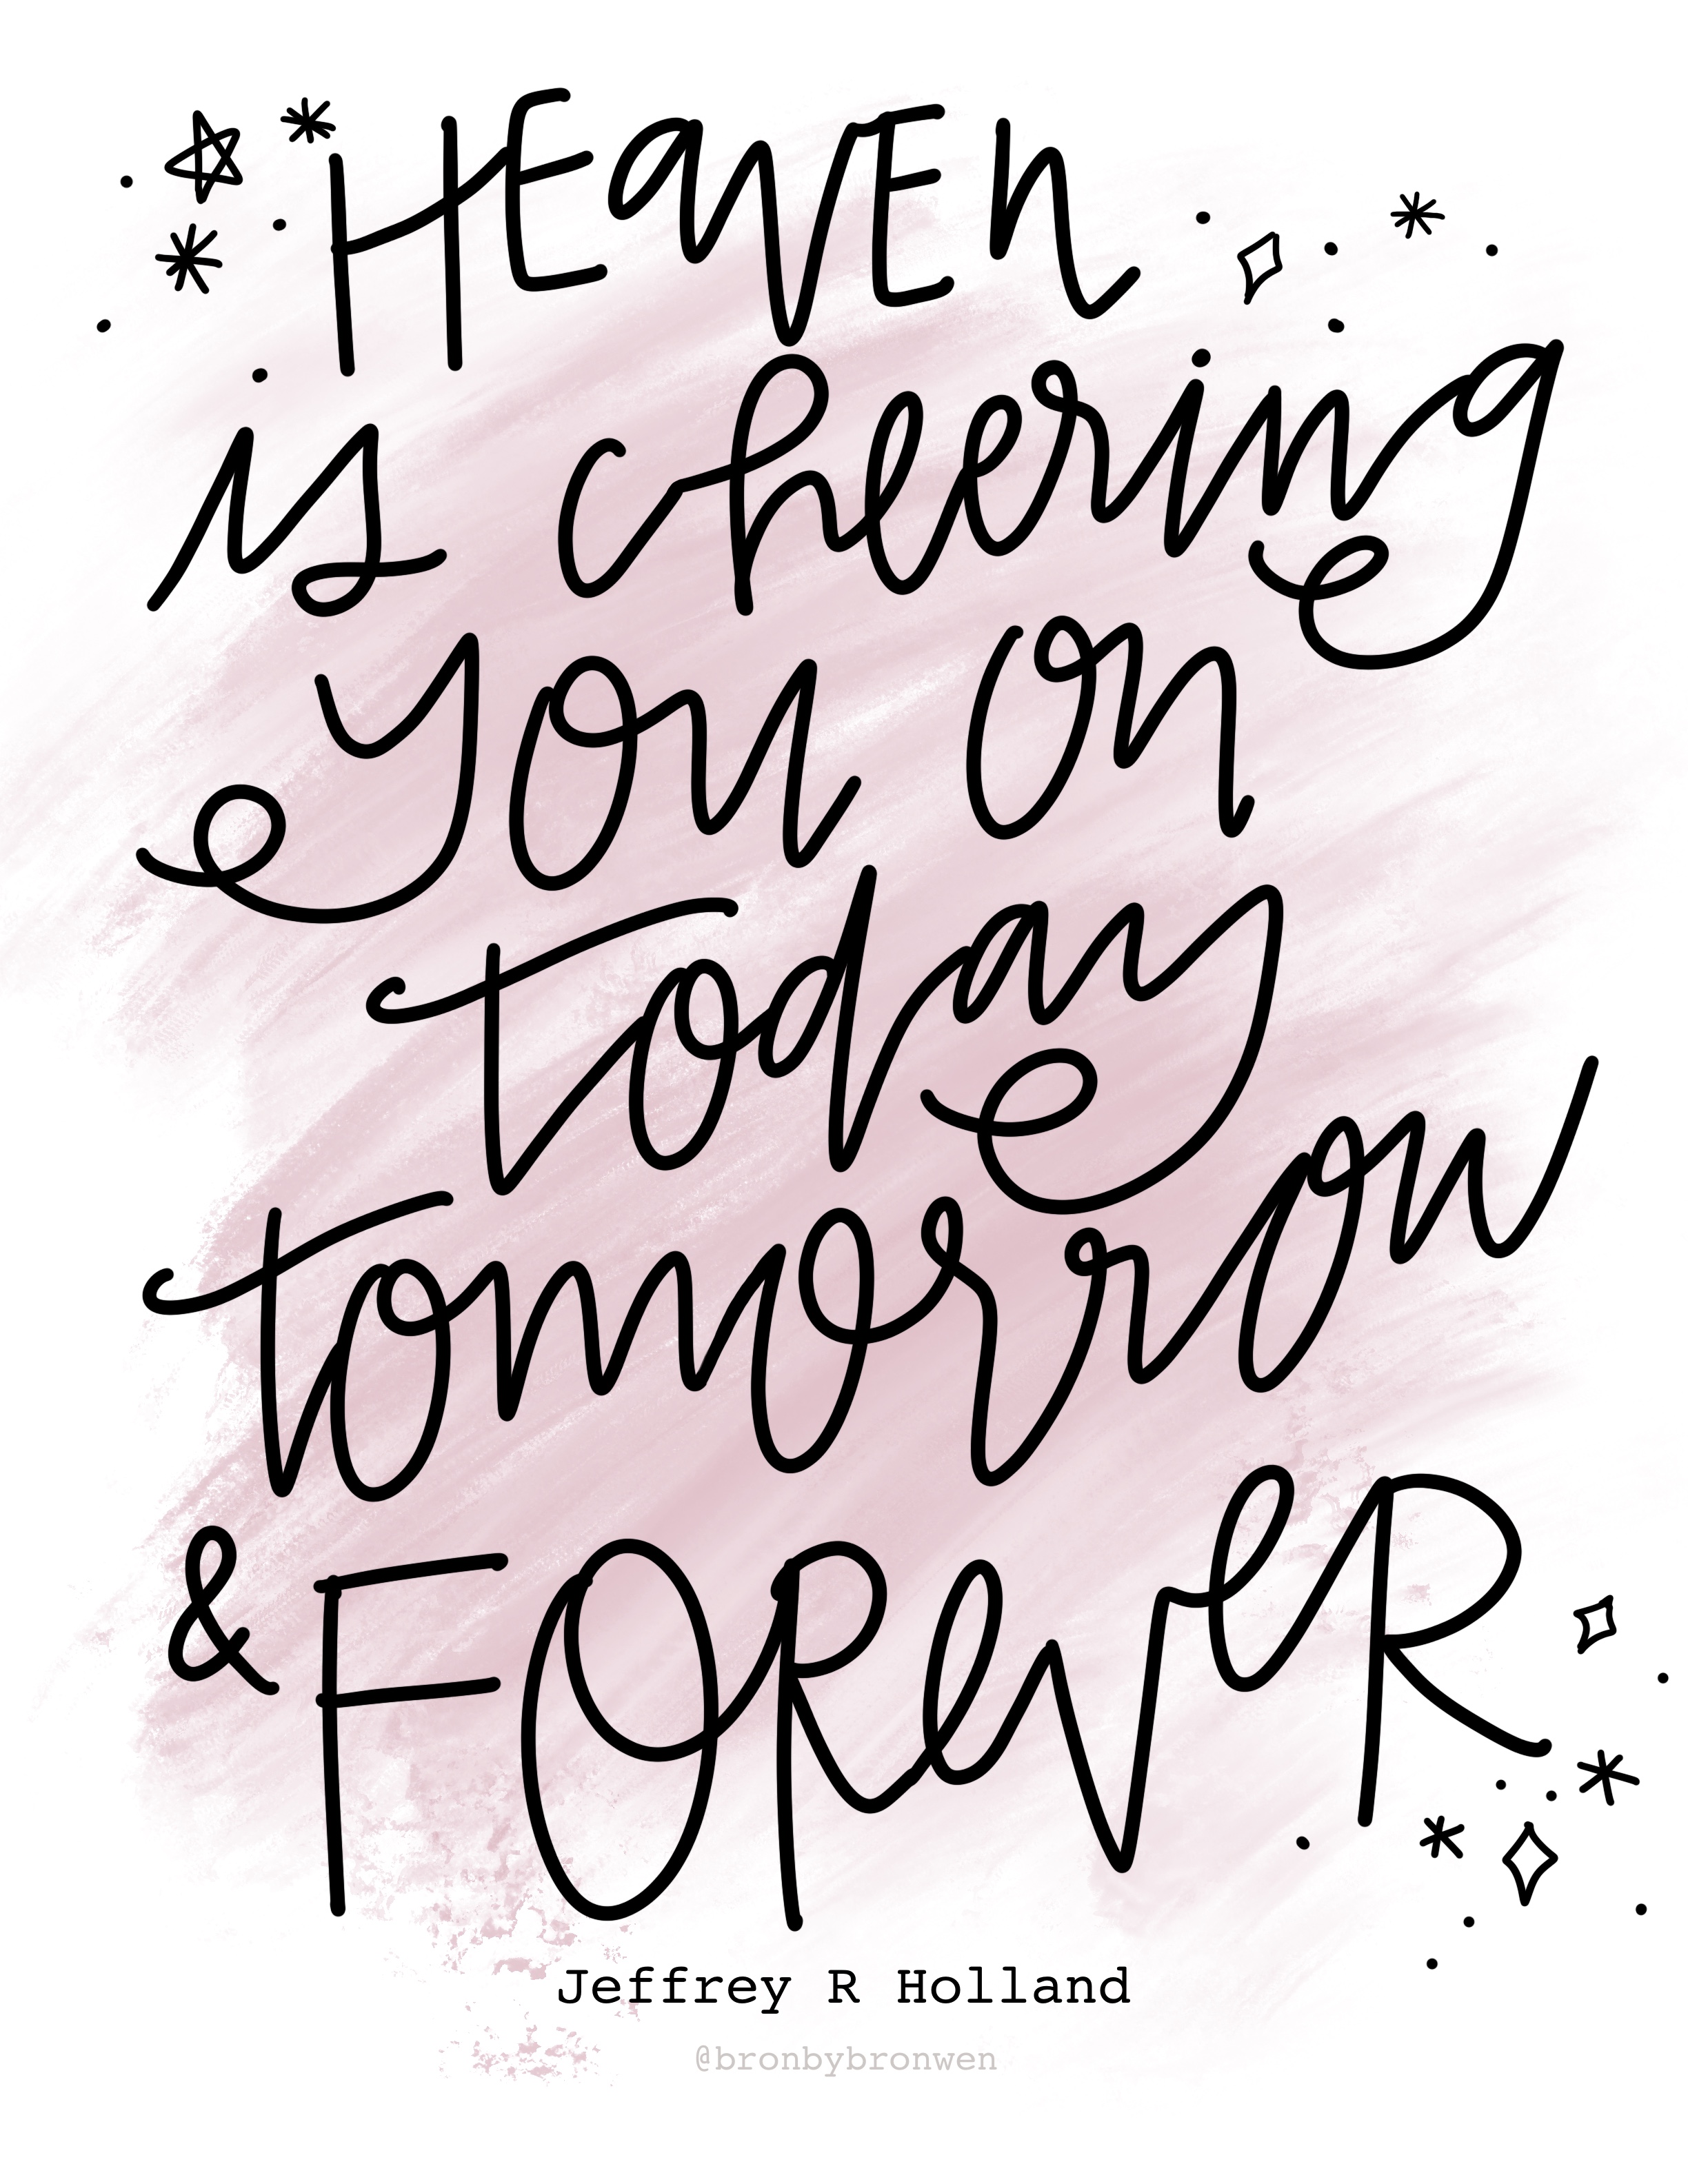 HEavEn
is cheering
you on
today
tomorrow
& FOReveR
Jeffrey R Holland
@bronbybronwen